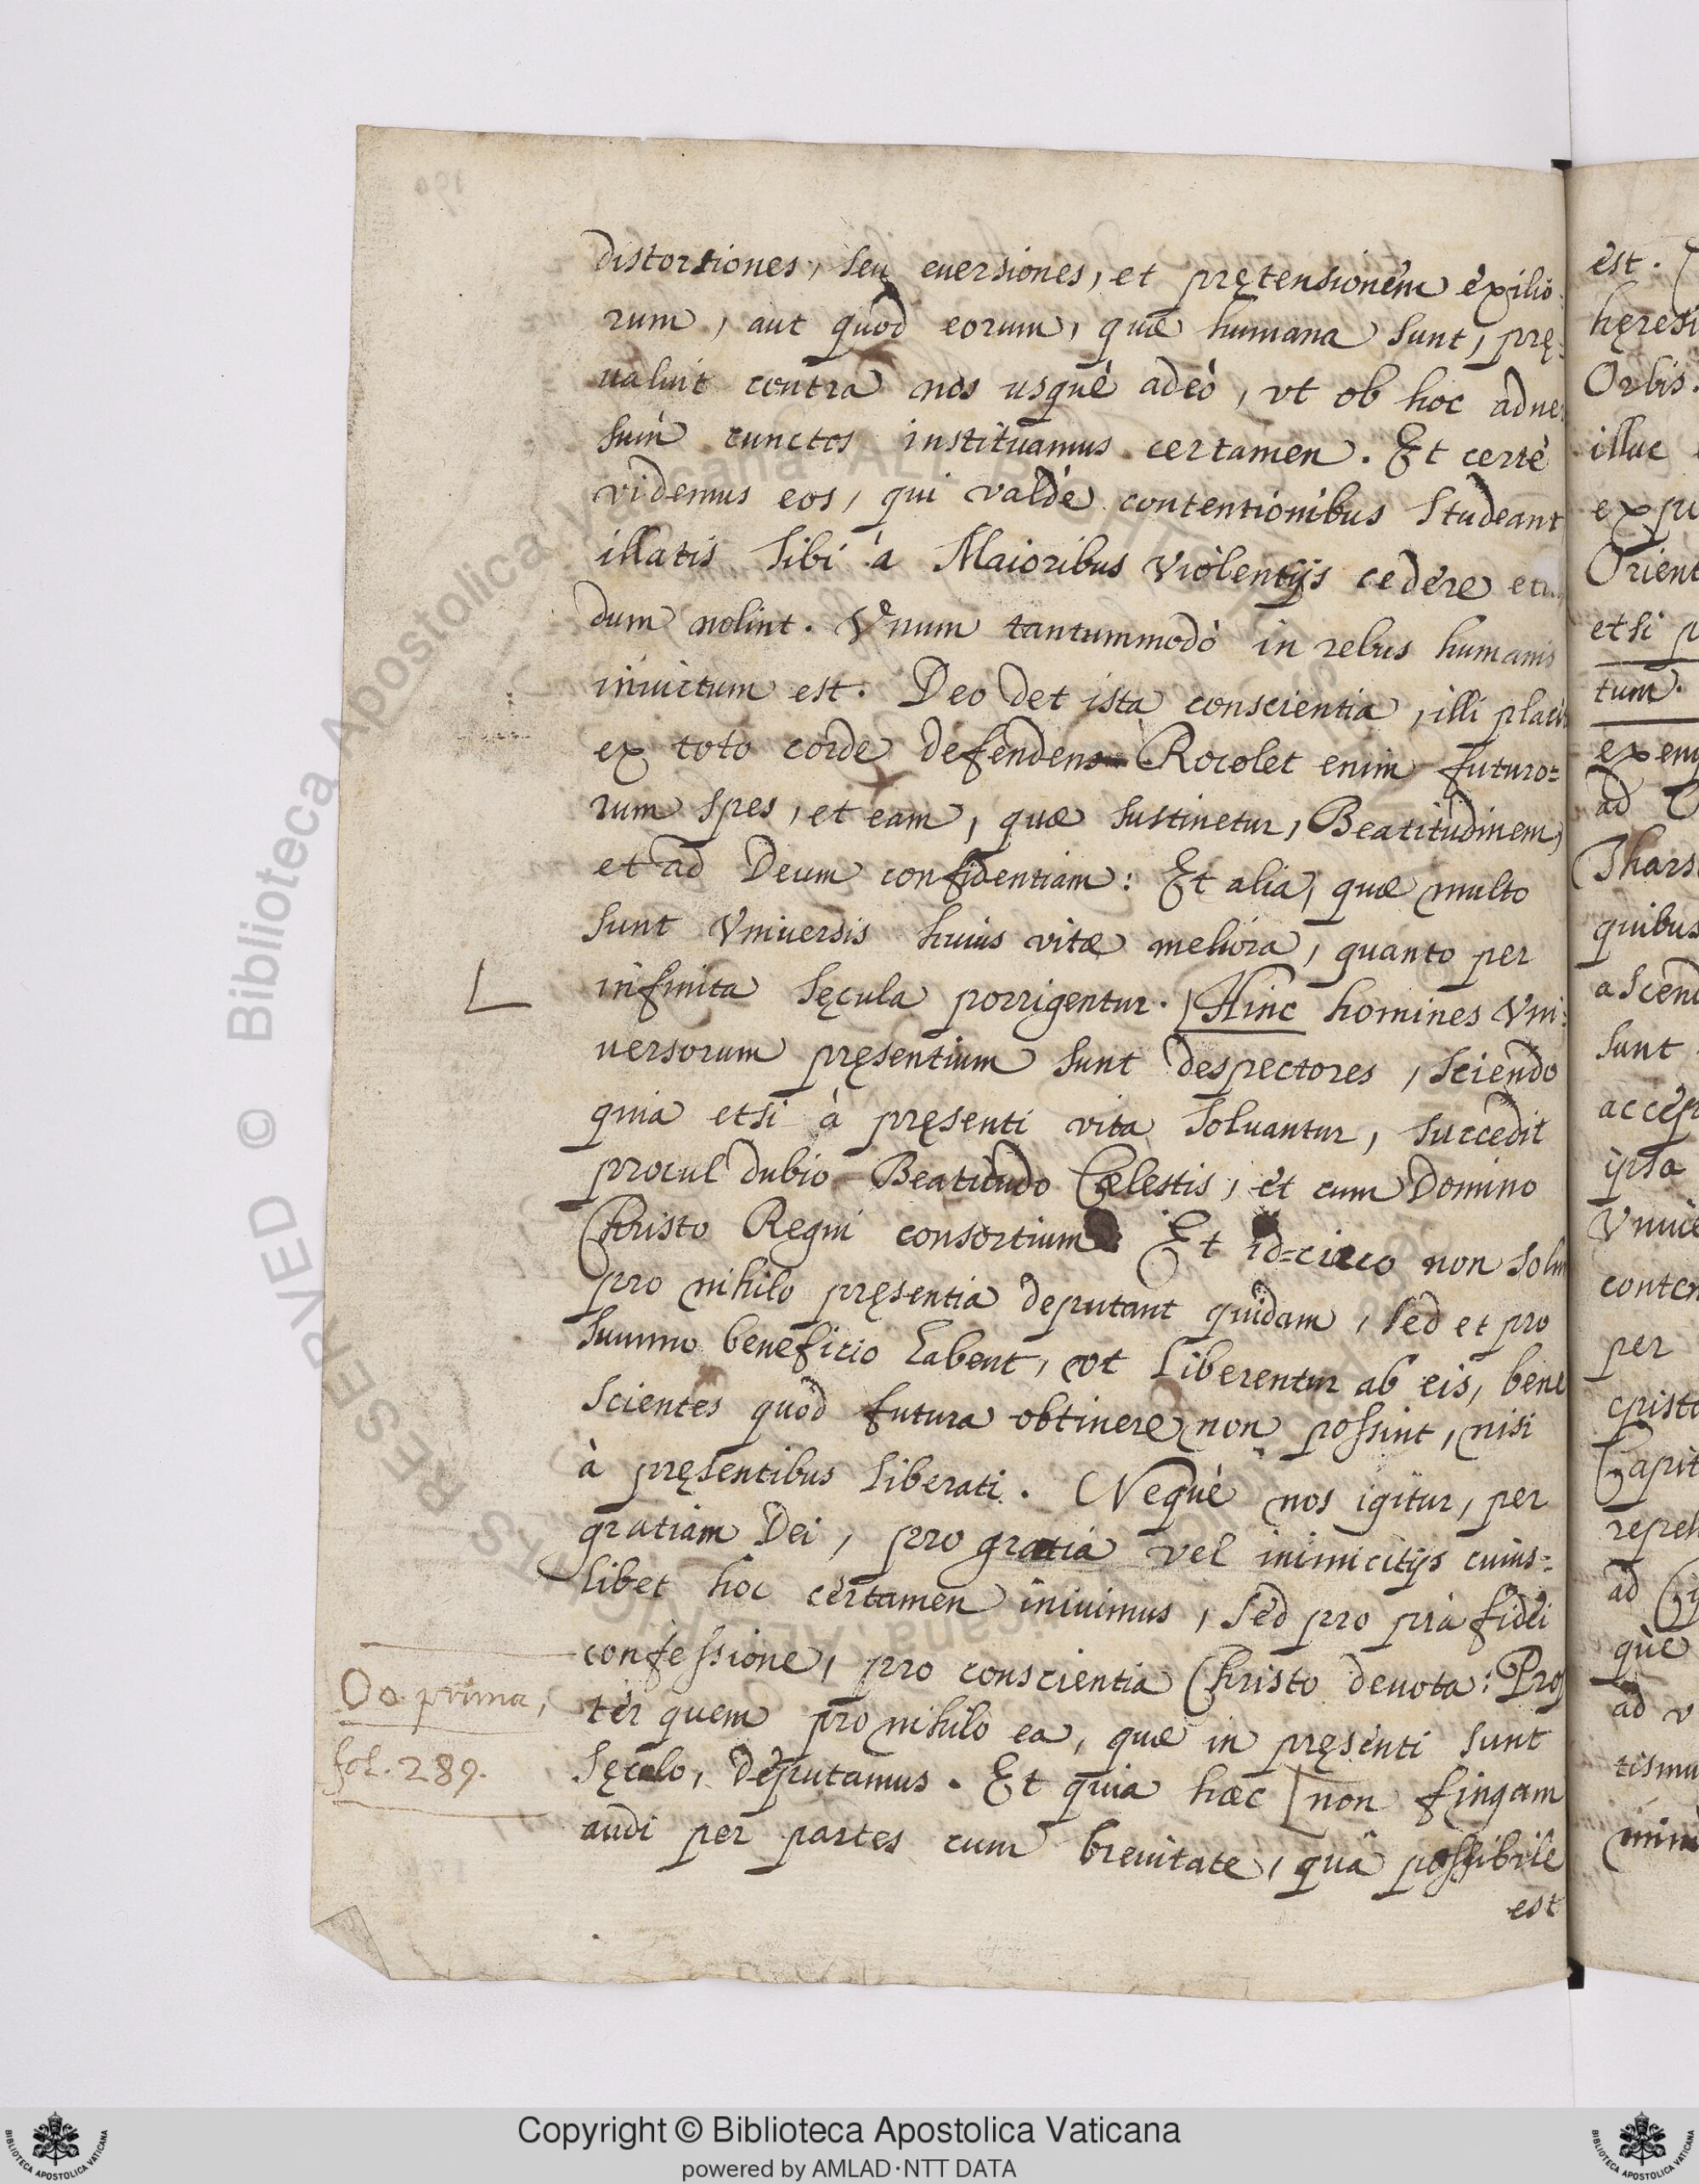 distortiones, seu euersiones, et prętensionem exilio-
rum, aut quod eorum, quæ humana sunt, prę-
ualuit contra nos usquè adeò, vt ob hoc aduer
sum cunctos instituamus certamen. Et certè
videmus eos, qui valdè contentionibus studeant
illatis sibi à Maioribus violentijs cedere
dum nolint. Vnum tantummodò in rebus humanis
inuictum est. Deo det ista conscientia, illi
ex toto corde defendens Rocolet enim futuro=
rum spes, et eam, quæ sustinetur, Beatitudinem,
et ad Deum confidentiam: Et alia, quæ multo
sunt Vniuersis huius vitæ meliora, quanto per
L infinita sęcula porrigentur. Hinc homines Vni=
uersorum pręsentium sunt despectores, sciendo
quia etsi à pręsenti vita soluantur, succedit
procul dubio Beatitudo Cælestis, et cum Domino
Christo Regni consortium Et id=circo non solum
pro nihilo pręsentia deputant quidam, sed et pro
summo beneficio habent, vt liberentur ab eis, bene
scientes quod futura obtinere non possint, nisi
à pręsentibus liberati. Nequè nos igitur, per
gratiam Dei, pro gratia vel inimicitijs cuius=
libet hoc certamen iniuimus, sed pro pia fidei
confessione, pro conscientia Christo deuota: Prop
Oo prima,
ter quem pro nihilo ea, quæ in pręsenti sunt
fol. 289.
sęculo, deputamus. Et quia hæc [non fingam
audi per partes cum breuitate, quâ possibile
est
est.
hęresi
Orbis.
illuc
expu
Orient
etsi p
tum.
exem
ad T
Thars
quibus
ascend
sunt
accep
ipsa
Vniue
conten
per
episto
Capit
repeh
ad
què
ad v
tismu
© Biblioteca Apostolica Vaticana ALL RIGHTS RESERVED
Copyright © Biblioteca Apostolica Vaticana
powered by AMLAD·NTT DATA
BIBLIOTECA APOSTOLICA VATICANA
BIBLIOTECA APOSTOLICA VATICANA